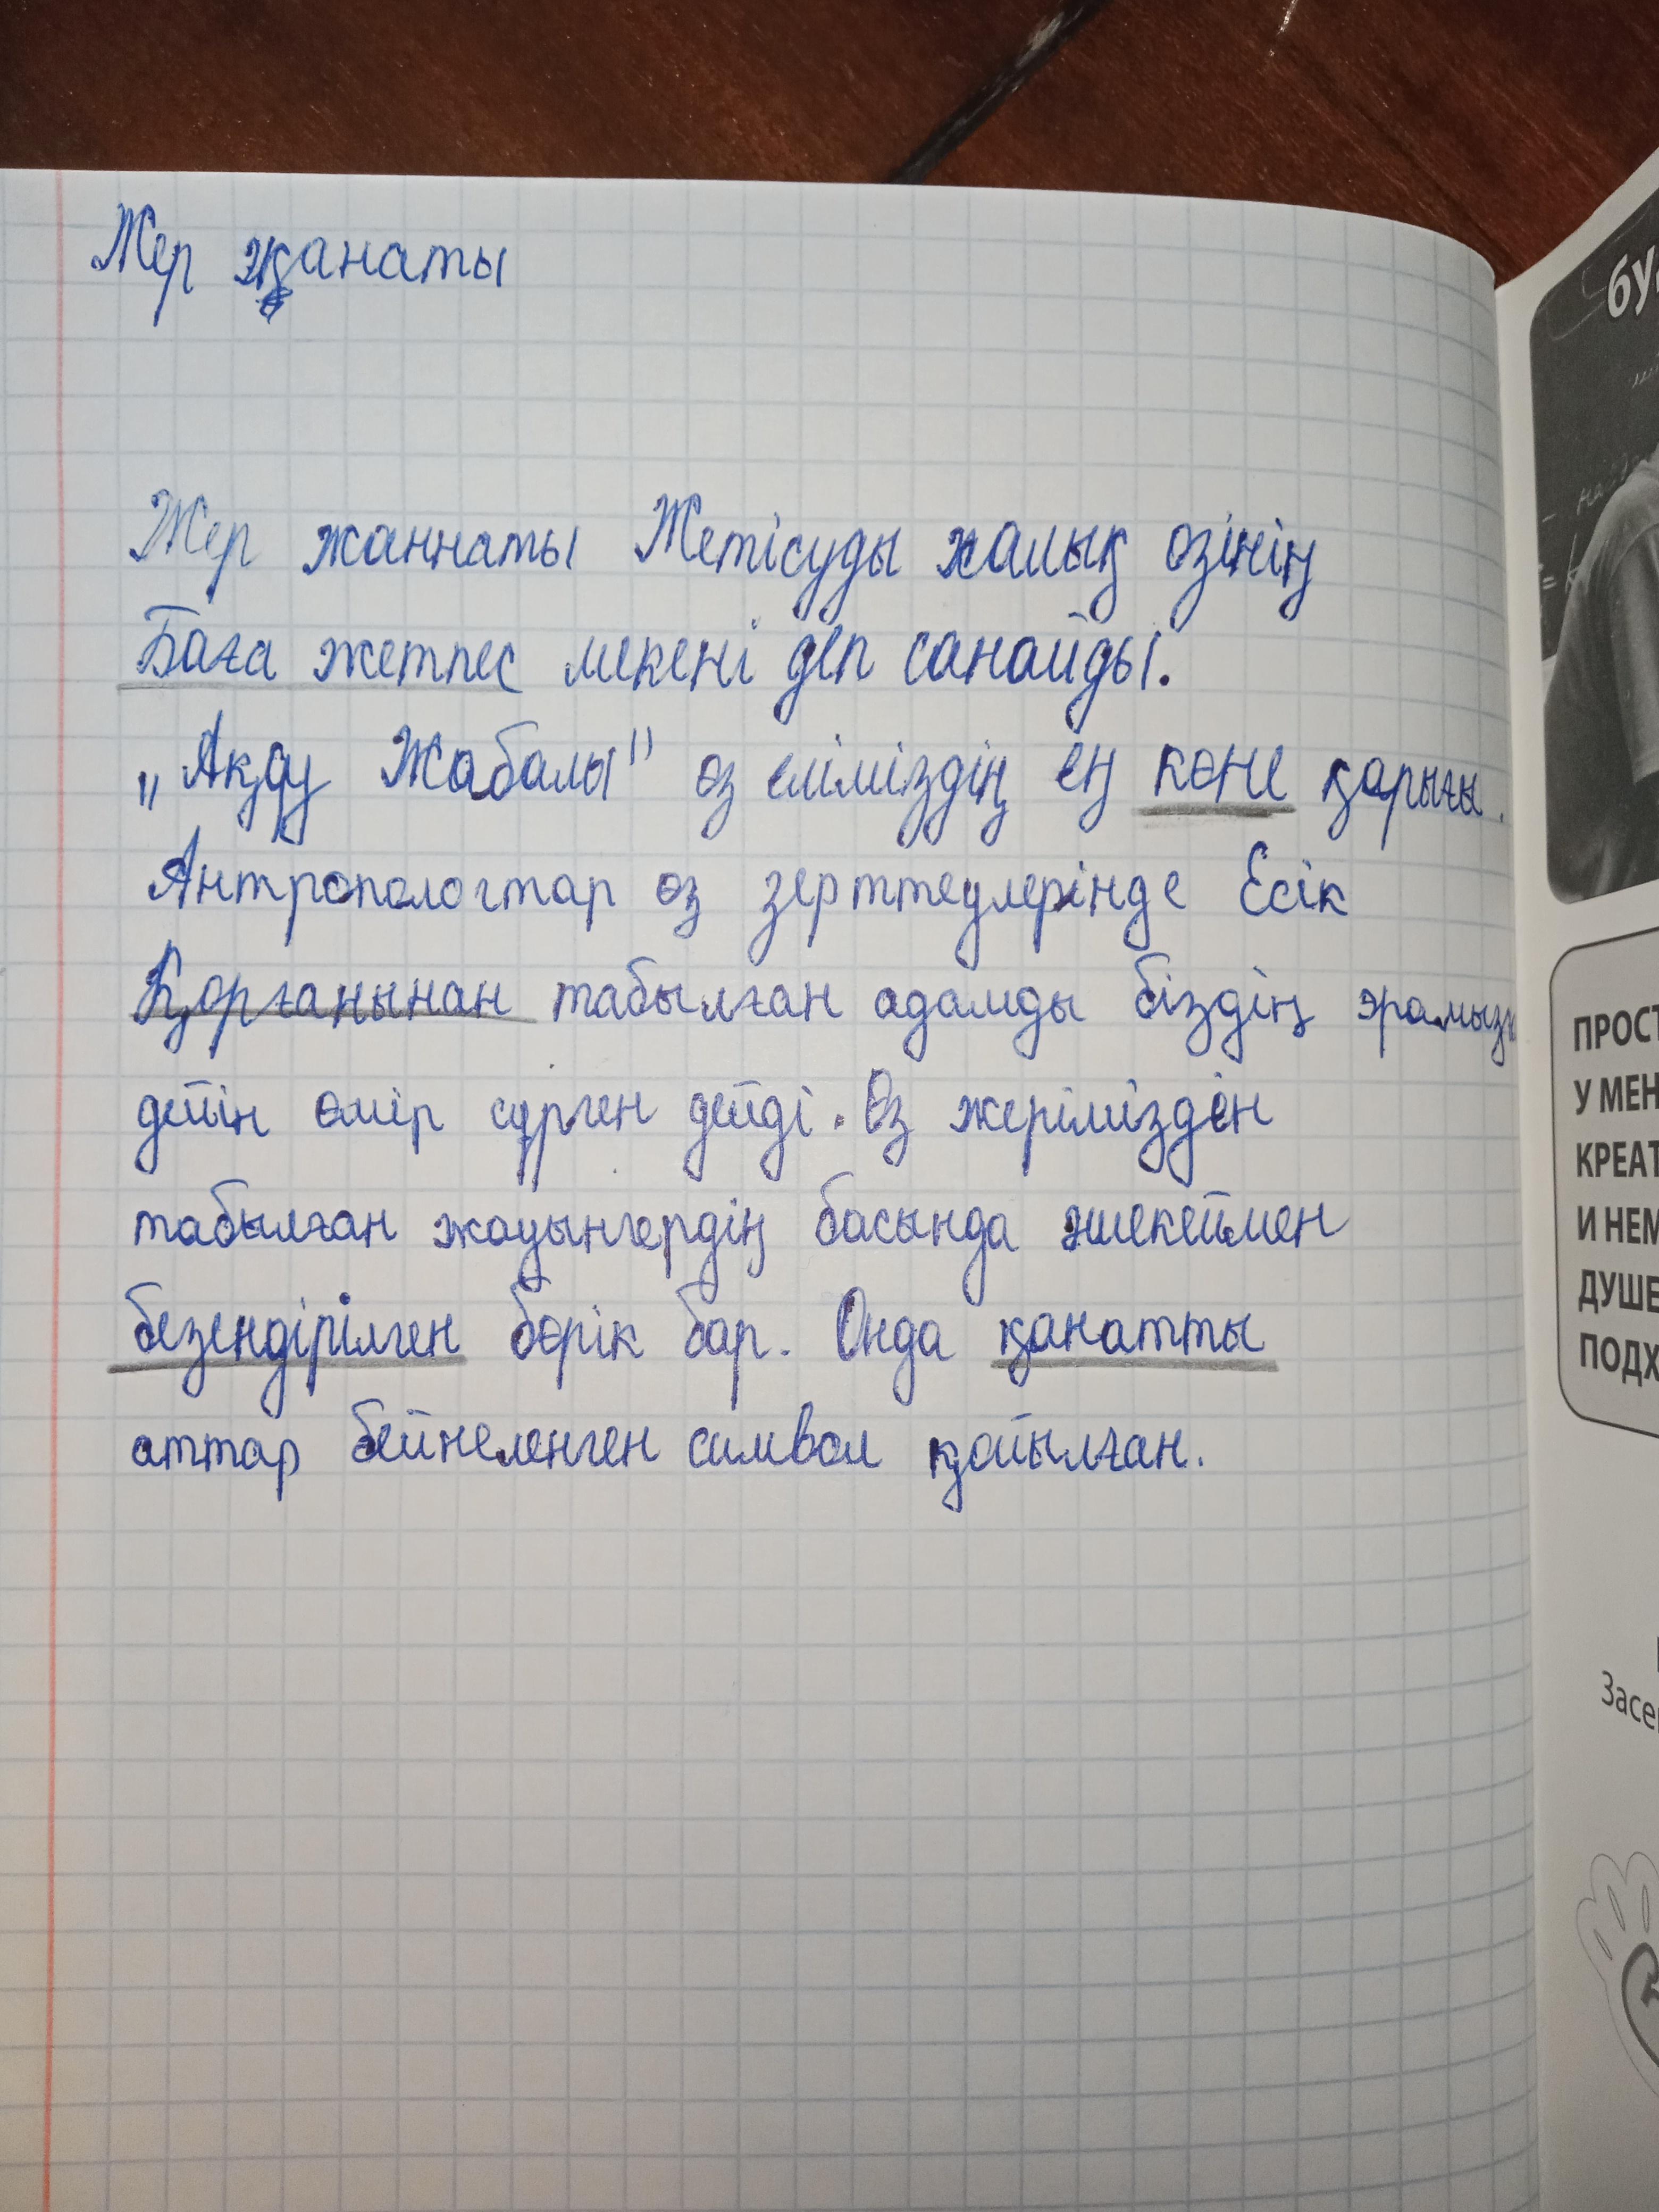 Жер жанаты
Жер жаннаты Жетісуды халық өзінің
Баға жетпес мекені деп санайды.
„Ақду Жабалы" өз еліміздің ең көне қарығы.
Антропологтар өз зерттеулерінде Есік
Қорғанынан табылған адамды біздің
дейін өмір сүрген дейді. Өз жерімізден
табылған жауынгердің басында әшекеймен
безендірілген бөрік бар. Онда қанатты
аттар бейнеленген символ қойылған.
ПРОСТ
У МЕН
КРЕАТ
И НЕМ
ДУШЕ
ПОДХ
Засе